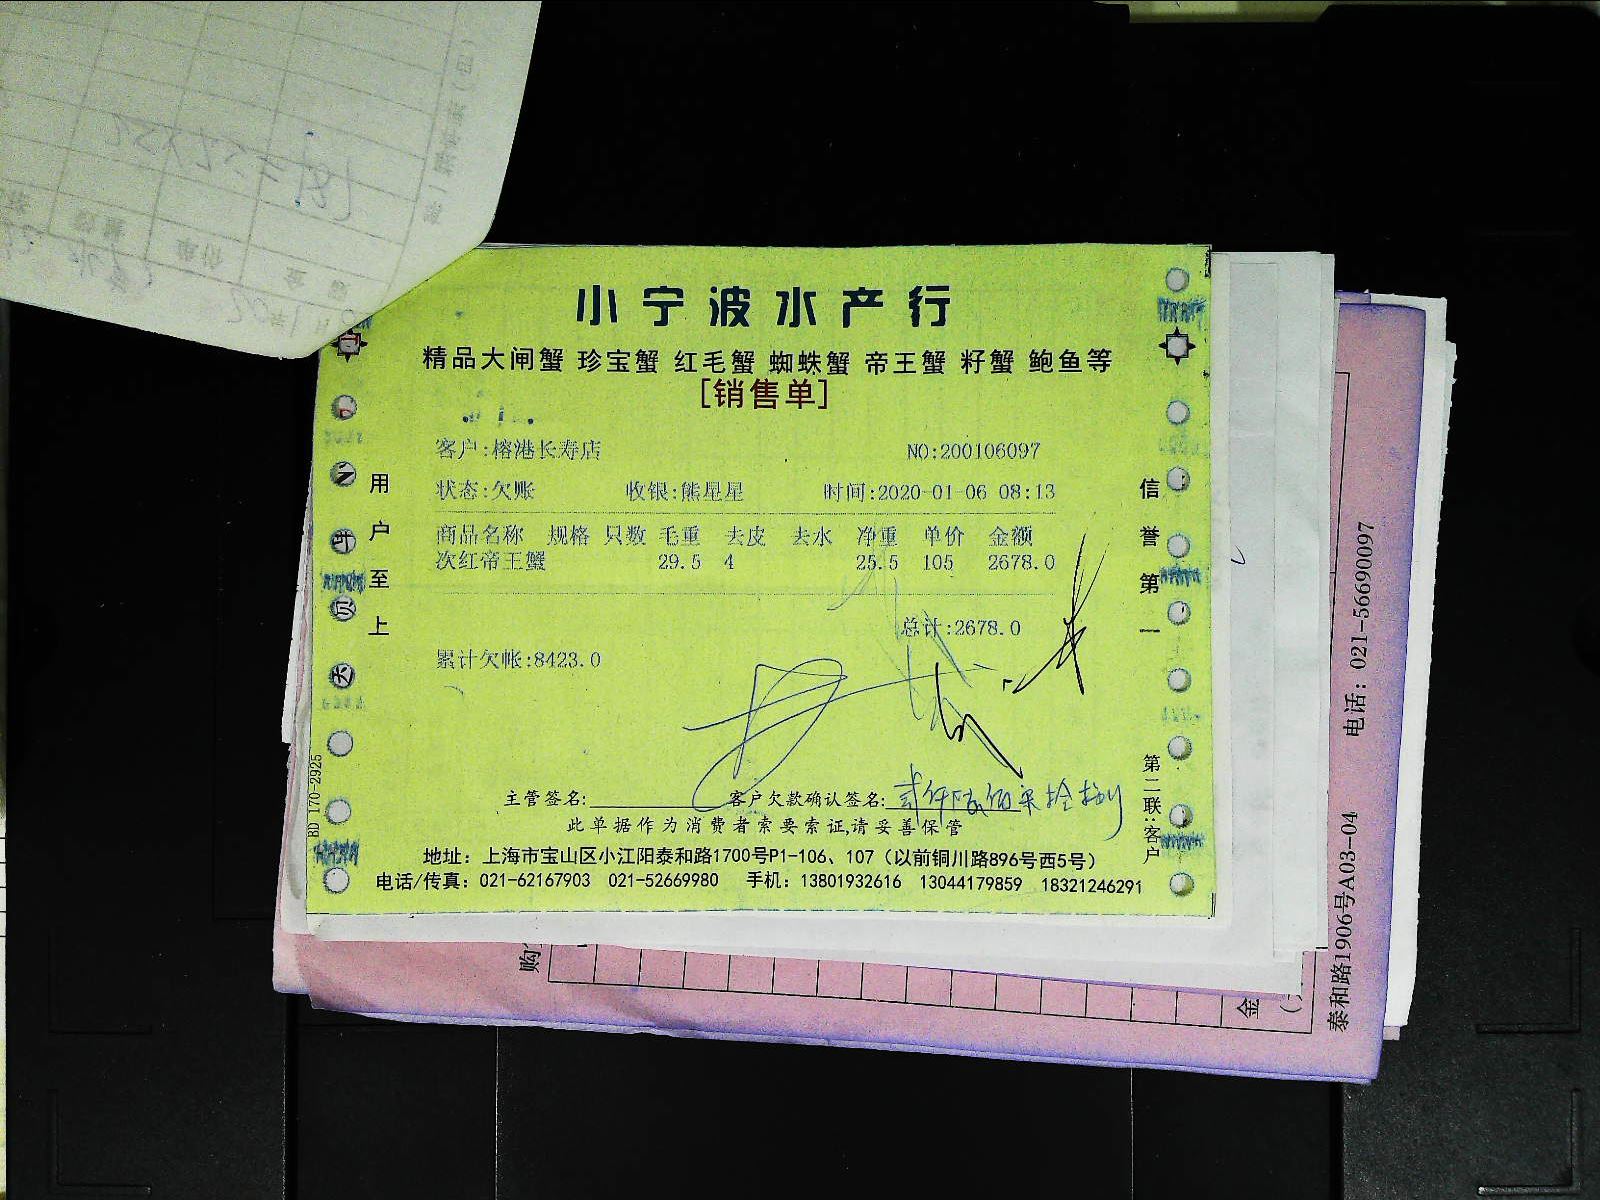 小宁波水产行
精品大闸蟹 珍宝蟹 红毛蟹 蜘蛛蟹 帝王蟹 籽蟹 鲍鱼等
[销售单]
客户:榕港长寿店 NO:200106097
状态:欠账 收银:熊星星 时间:2020-01-06 08:13
商品名称 规格 只数 毛重 去皮 去水 净重 单价 金额
次红帝王蟹 29.5 4 25.5 105 2678.0
总计:2678.0
累计欠帐:8423.0
主管签名: 客户欠款确认签名: 贰仟陆佰柒拾捌
此单据作为消费者索要索证,请妥善保管
地址：上海市宝山区小江阳泰和路1700号P1-106、107（以前铜川路896号西5号）
电话/传真：021-62167903 021-52669980 手机：13801932616 13044179859 18321246291
用户至上
信誉第一
第二联:客户
BD 170-2925
泰和路1906号A03-04 电话：021-56690097
购
金